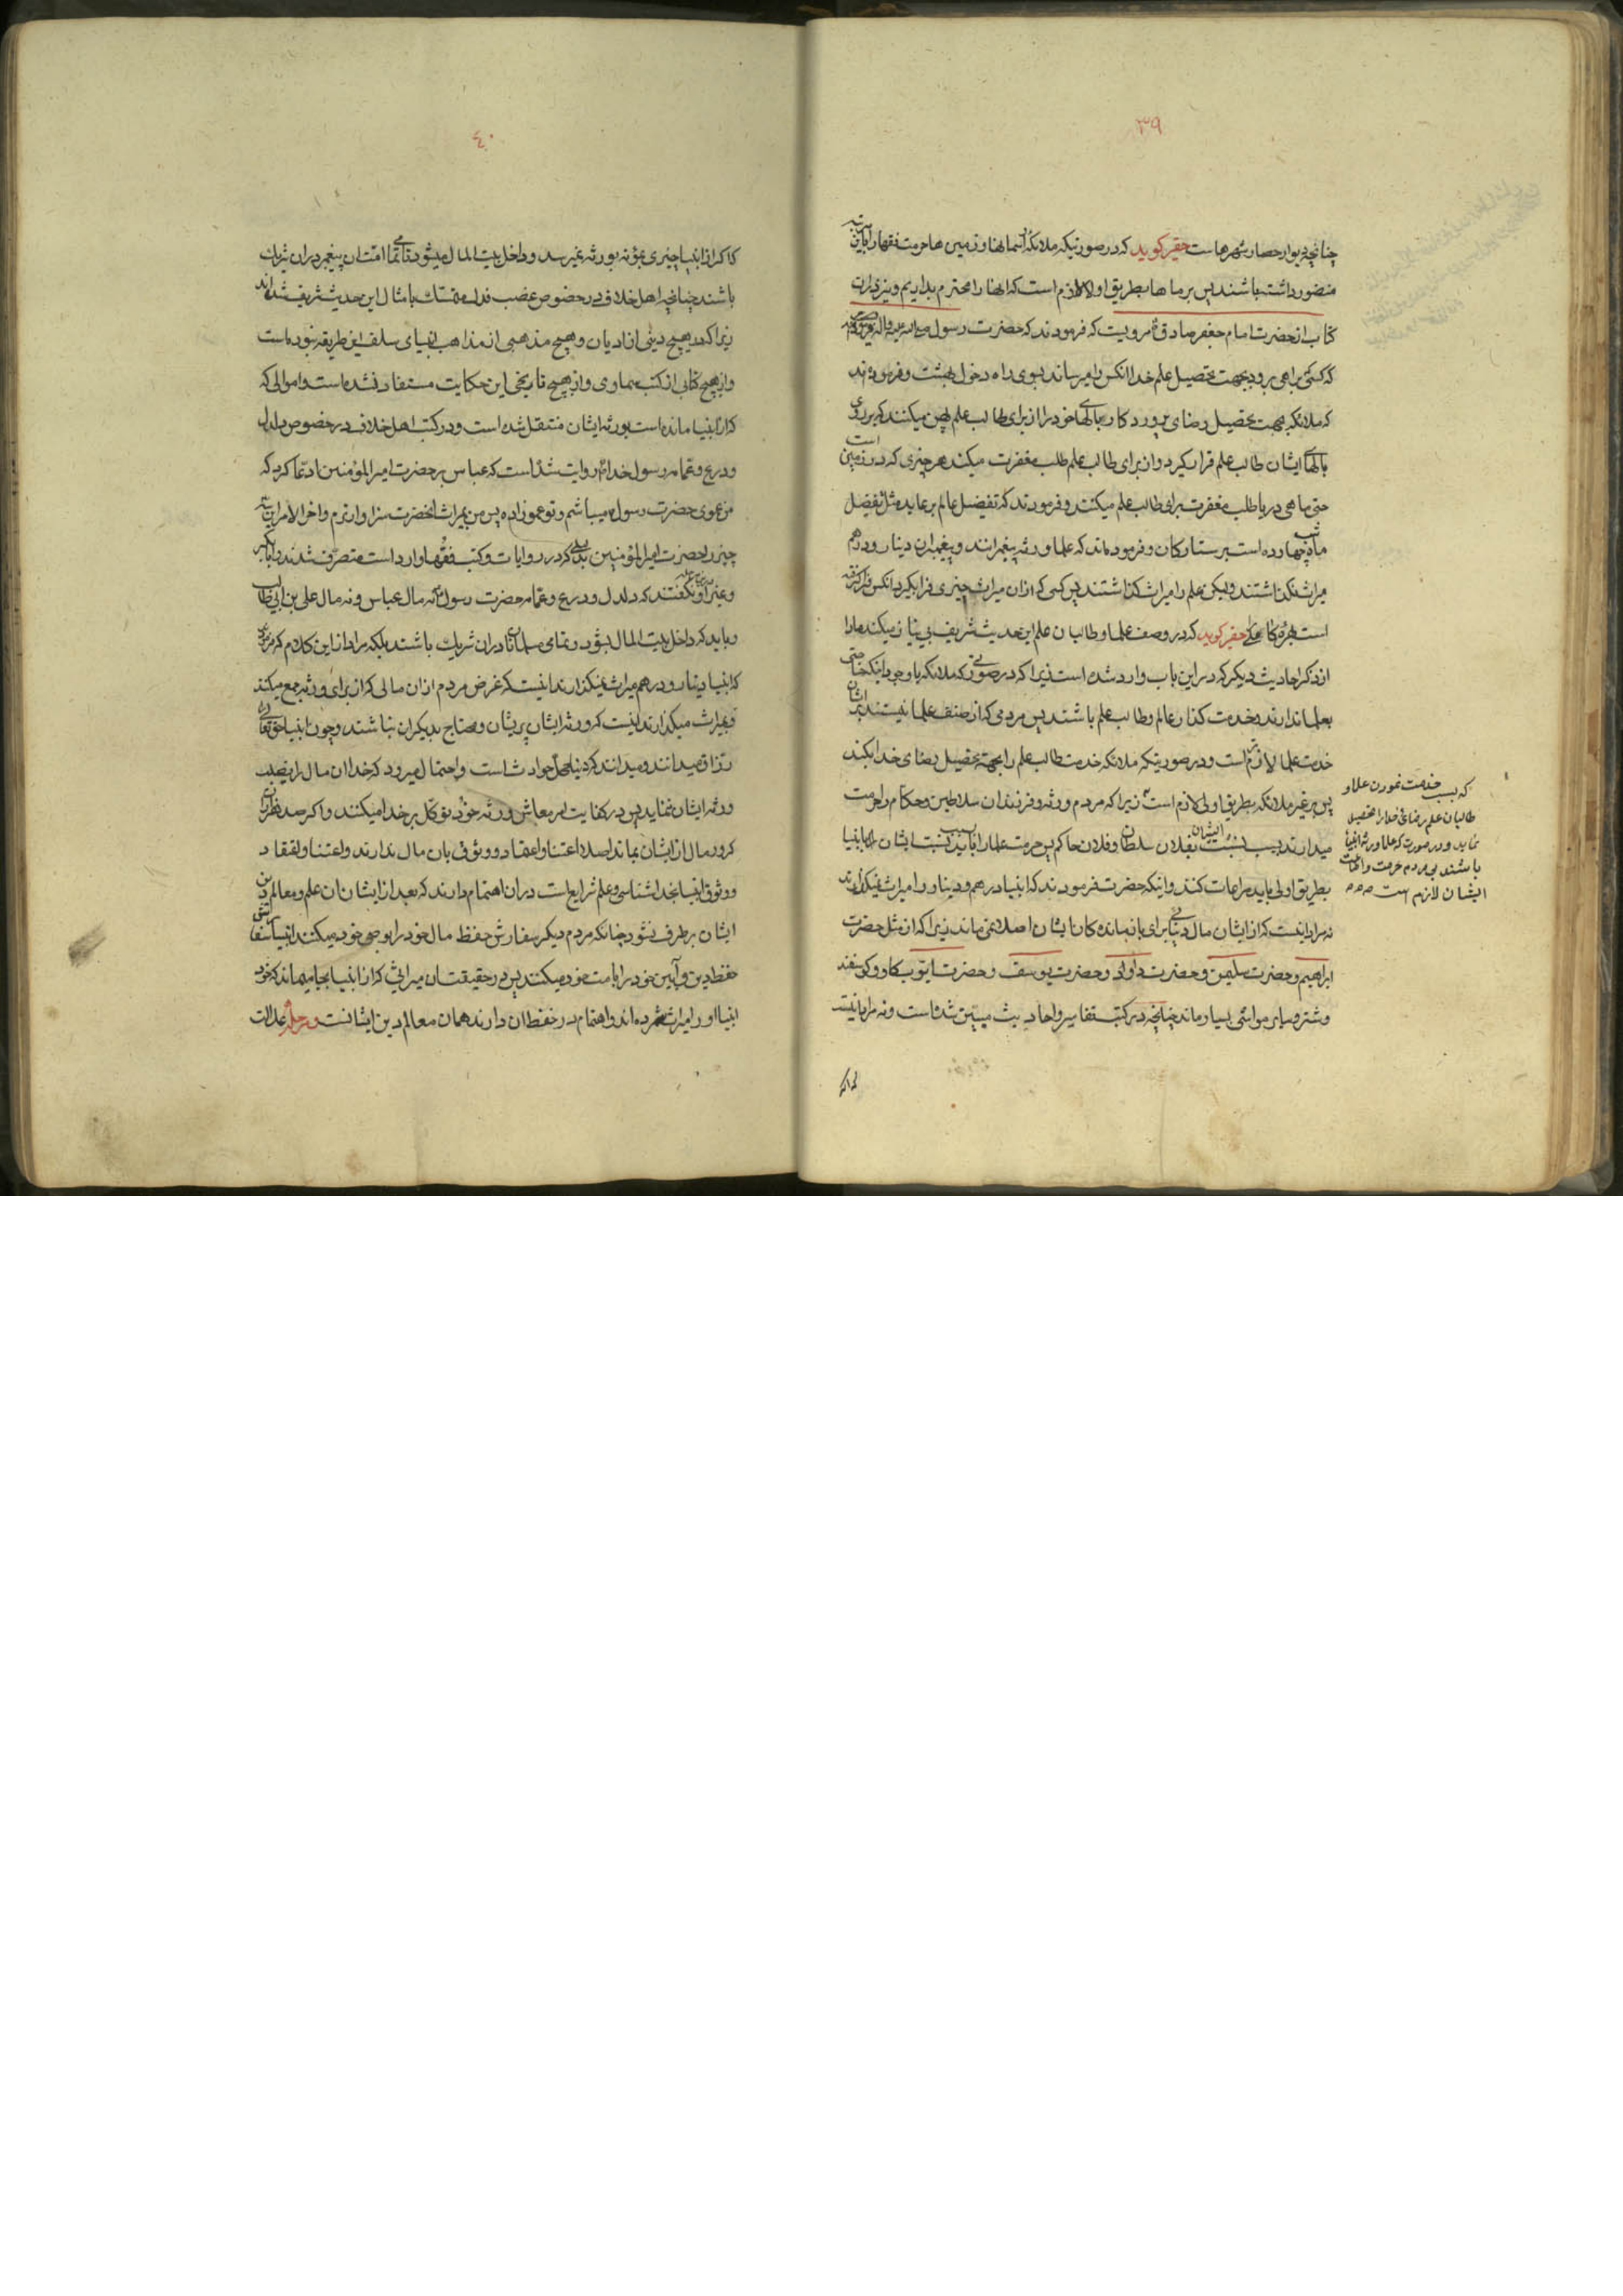 ۳۹
چنانچه دیوار حصار شهرهاست حقیر کوید که در صورتیکه ملائکه آسمانها و زمین ها حرمت فقها را باین مرتبه
منضور داشته باشند پس بر ماها بطریق اولا لازم است که انها را محترم بداریم و نیز در ان
کتاب از حضرت امام جعفر صادق ع مرویست که فرمودند که حضرت رسول صلی الله علیه و آله فرموده
که کسی براهی برود بجهت تحصیل علم خدا انکس را میرساند بسوی راه دخول بهشت و فرموده اند
که ملائکه بجهت تحصیل رضای پروردکار بالهای خود را از برای طالب علم پهن میکنند که بر روی
بالهای ایشان طالب علم قرار کیرد و از برای طالب علم طلب مغفرت میکند هر چیزی که در زمین است
حتی ماهی دریا طلب مغفرت برای طالب علم میکنند و فرمودند که تفضیل عالم بر عابد مثل تفضیل
ماه شب چهارده است بر ستارکان و فرموده اند که علما ورثه پیغمبرانند و پیغمبران دینار و درهم
میراث نکذاشتند ولیکن علم را میراث کذاشتند پس کسی که از ان میراث چیزی فرا بکیرد انکس فرا کرفته
است بهره کاملی حقیر کوید که در وصف علما و طالبان علم این حدیث شریف بی نیاز میکند ما را
از ذکر احادیث دیکر که در این باب وارد شده است زیرا که در صورتی که ملائکه با وجود اینکه
بعلما ندارند و خدمت کذار عالم و طالب علم باشند پس مردمی که از صنف علما نیستند بر ایشان
خدمت علما لازم تر است و در صورتیکه ملائکه خدمت طالب علم را بجهة تحصیل رضای خدا بکنند
پس بر غیر ملائکه بطریق اولی لازم است زیرا که مردم ورثه و فرزندان سلاطین و حکام را حرمت
میدارند بسبب نسبت ایشان بفلان سلطان و فلان حاکم پس حرمت علما را باید بسبب نسبت ایشان بانبیا
بطریق اولی باید مراعات کنند و اینکه حضرت فرمودند که انبیا درهم و دینار و را میراث نمیکذارند
نه مراد اینست که از ایشان مال دنیائی برای بازماندکان ایشان اصلا نمی ماند زیرا که از مثل حضرت
ابراهیم و حضرت سلیمن و حضرت داود و حضرت یوسف و حضرت ایوب کاو و کوسفند
و شتر و سایر مواشی بسیار ماند چنانچه در کتب تفاسیر و احادیث مبین شده است و نه مراد اینست
که بسبب خدمت نمودن علما و
طالبان علم رضای خدا را تحصیل
نماید و در صورت که علما ورثه انبیا
باشند بر مردم حرمت و اطاعت
ایشان لازم است
که اکر
٤٠
که اکر از انبیا چیزی بماند بورثه نمیرسد و داخل بیت المال میشود تا تمامی امت ان پیغمبر در ان شریک
باشند چنانچه اهل خلاف در خصوص غصب فدک متمسک بامثال این حدیث شریف شده اند
زیرا که در هیچ دینی از ادیان و هیچ مذهبی از مذاهب انبیای سلف این طریقه نبوده است
و از هیچ کتابی از کتب سماوی و از هیچ تاریخی این حکایت مستفاد نشده است و اموالی که
که از انبیا مانده است بورثه ایشان منتقل شده است و در کتب اهل خلاف در خصوص دلدل
و درع و عمامه رسول خدا ص روایت شده است که عباس بر حضرت امیر المؤمنین ادعا کرد که
من عموی حضرت رسول میباشم و تو عموزاده پس من بمیراث انحضرت سزاوار ترم و اخر الامر این سه
چیز را حضرت امیر المؤمنین بدلیلی که در روایات و کتب فقها وارد است متصرف شدند و ابابکر
و غیر او نکفتند که دلدل و درع و عمامه حضرت رسول ص نه مال عباس و نه مال علی بن ابی طالب
و باید که داخل بیت المال بشود و تمامی مسلمانان در ان شریک باشند بلکه مراد از این کلام که فرمود
که انبیا دینار و درهم میراث نمیکذارند اینست که غرض مردم از ان مالی که از برای ورثه جمع میکنند
و میراث میکذارند اینست که ورثه ایشان پریشان و محتاج بدیکران نباشند و چون انبیا حق تعالی را
رزاق میدانند و میدانند که دنیا محل حوادث است و احتمال میرود که خدا ان مال را نصیب
ورثه ایشان ننماید پس در کفایت امر معاش ورثه خود توکل بر خدا میکنند و اکر صد هزار
کرور مال از ایشان بماند اصلا اعتنا و اعتقاد و وثوقی بان مال ندارند و اعتنا و اعتقاد
و وثوق انبیا بخداشناسی و علم شرایع است و در ان اهتمام دارند که بعد از ایشان ان علم و معالم دین
ایشان برطرف نشود چنانکه مردم دیکر سفارش حفظ مال خود را بوصی خود میکنند انبیا سفارش
حفظ دین و آیین خود را بامت خود میکنند پس در حقیقت ان میراثی که از انبیا بجا میماند که خود
انبیا او را میراث شمرده اند و اهتمام در حفظ ان دارند همان معالم دین ایشانست